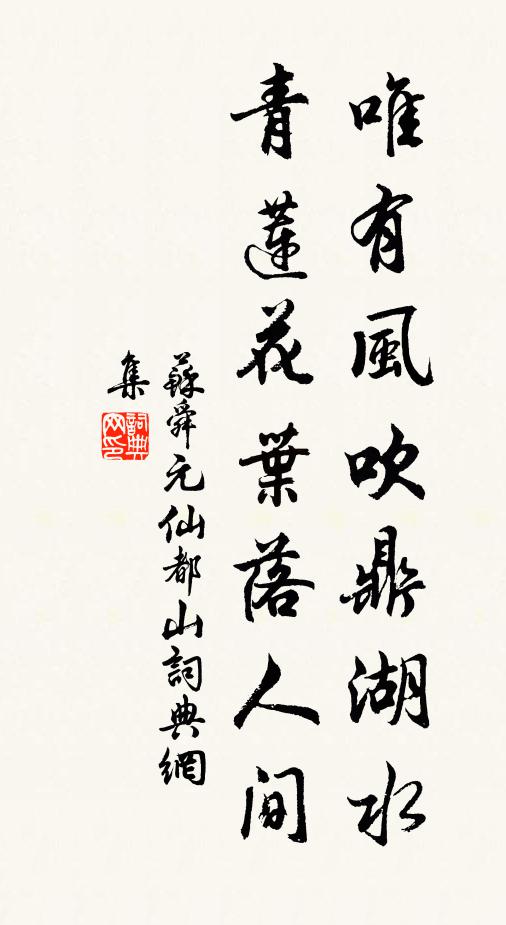 唯有風吹鼎湖水
青蓮花葉落人间
蘇舜元仙都山詞典網
集
詞典
网印